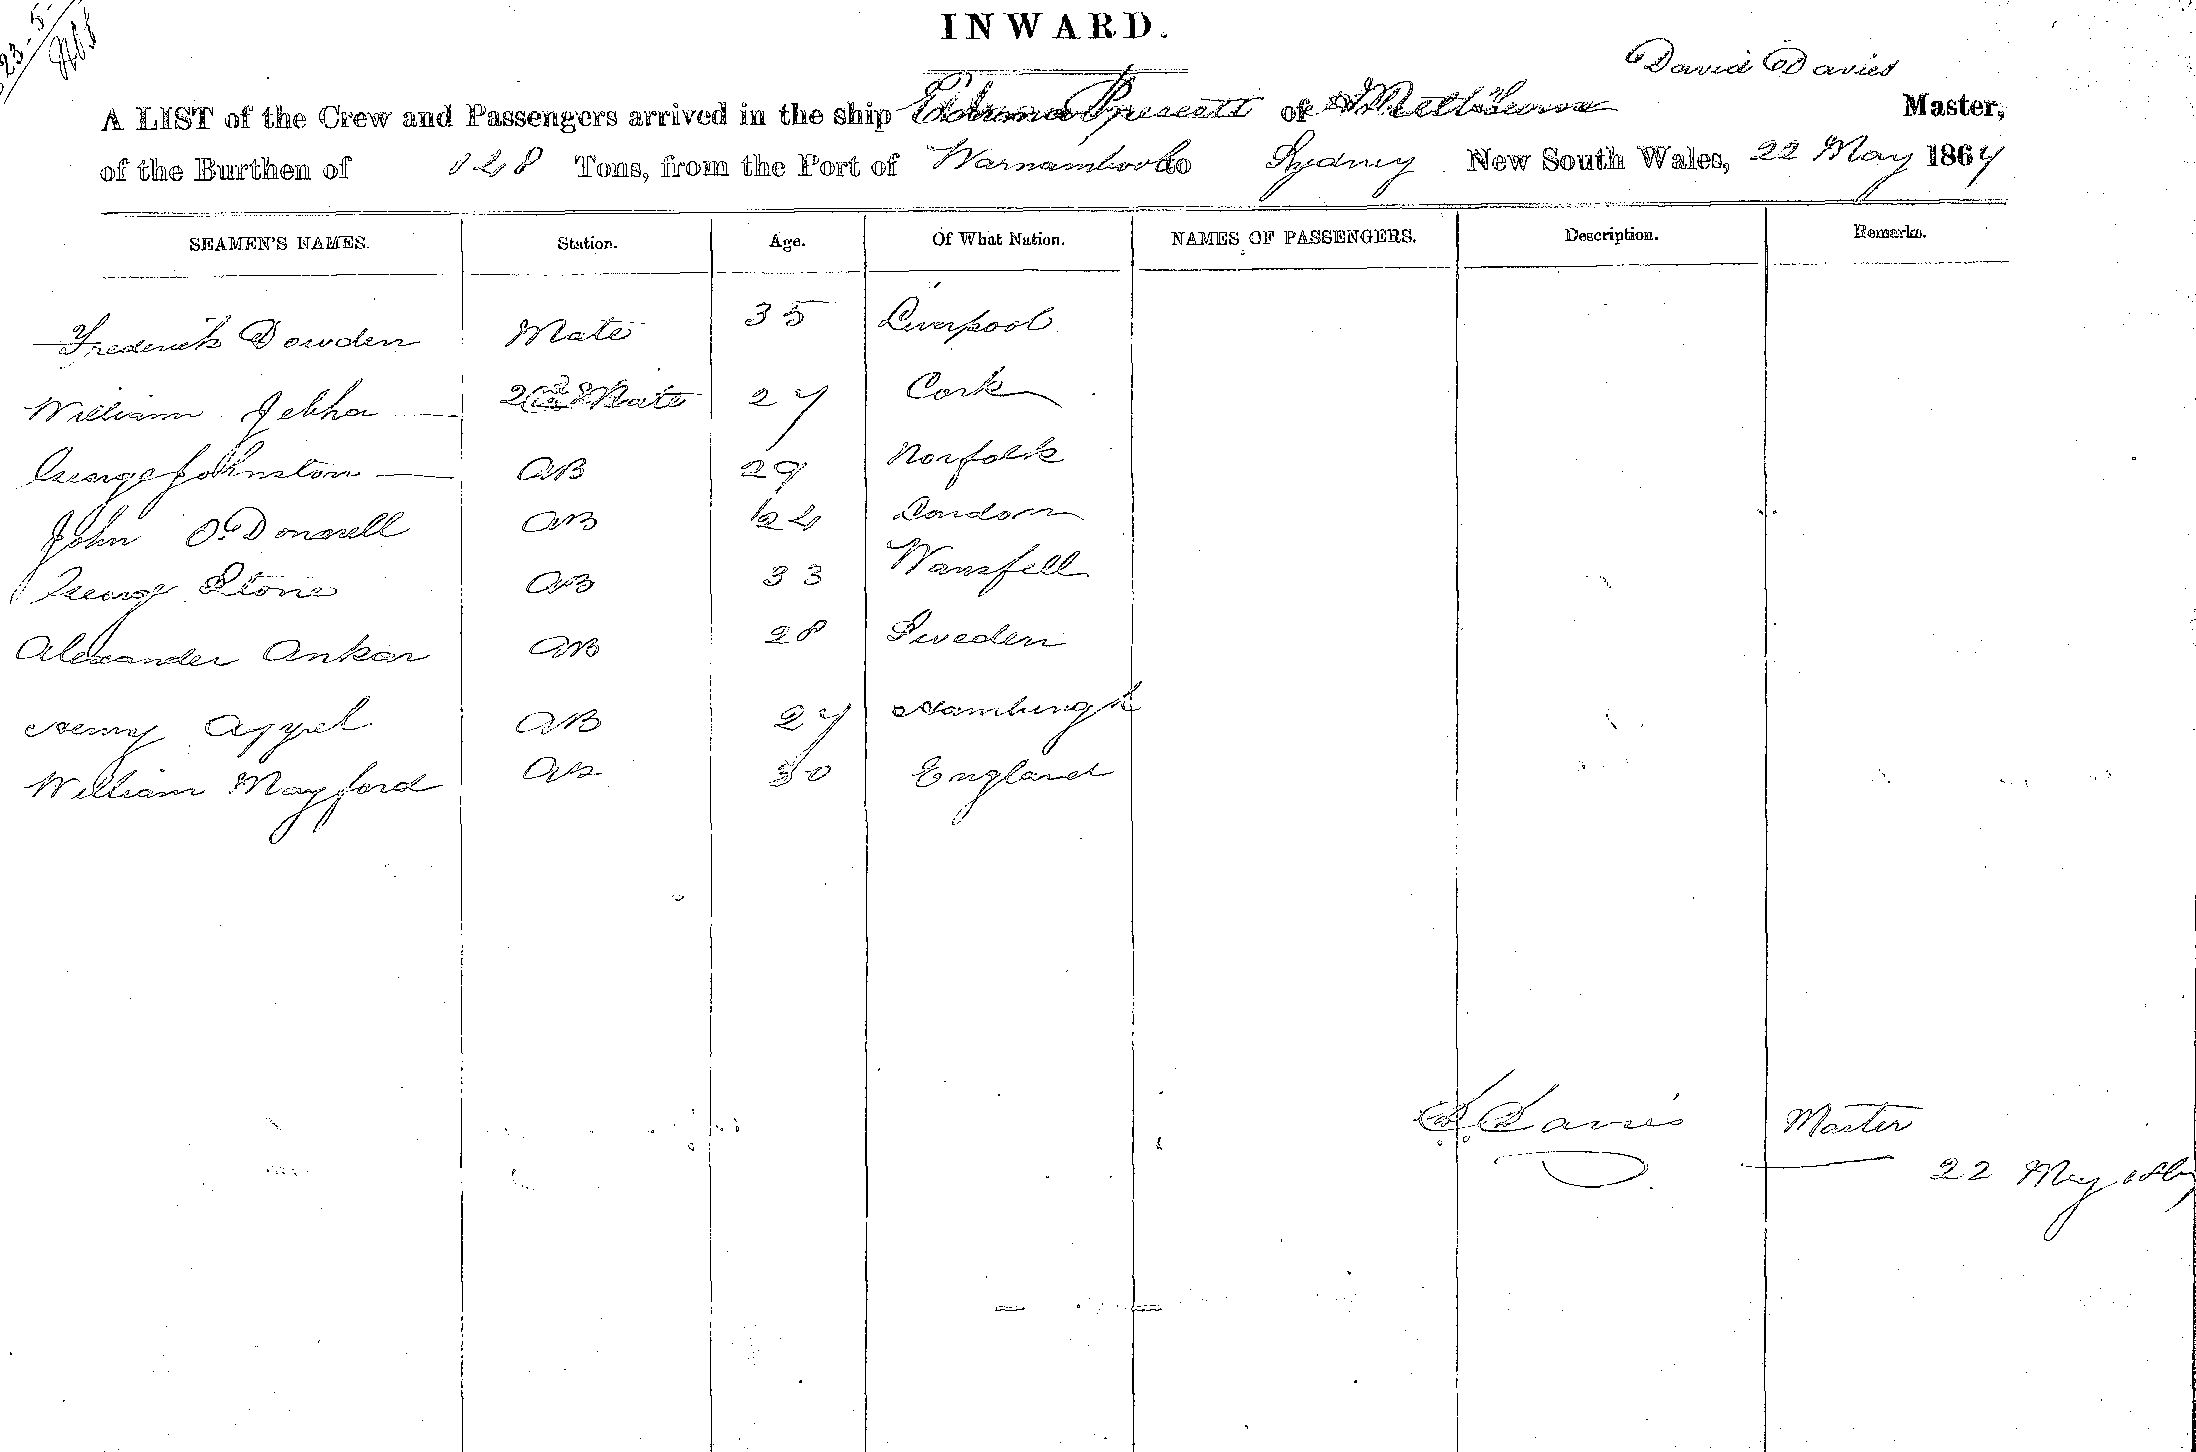 INWARD.
David Davies
A LIST of the Crew and Passengers arrived in the ship Edward Prescott of Melbourne Master,
of the Burthen of 128 Tons, from the Port of Warnambool to Sydney New South Wales, 22 May 1867
SEAMEN'S NAMES. Station. Age. Of What Nation. NAMES OF PASSENGERS. Description. Remarks.
Frederick Dowden Mate 35 Liverpool
William 2nd Mate 27 Cork
George Johnston AB 29 Norfolk
John O'Donnell AB 24 London
George Stone AB 33 Wansfell
Alexander Ankar AB 28 Sweden
Henry Appel AB 27 Hamburgh
William Mayford AB 30 England
D Davies Master
22 May 1867